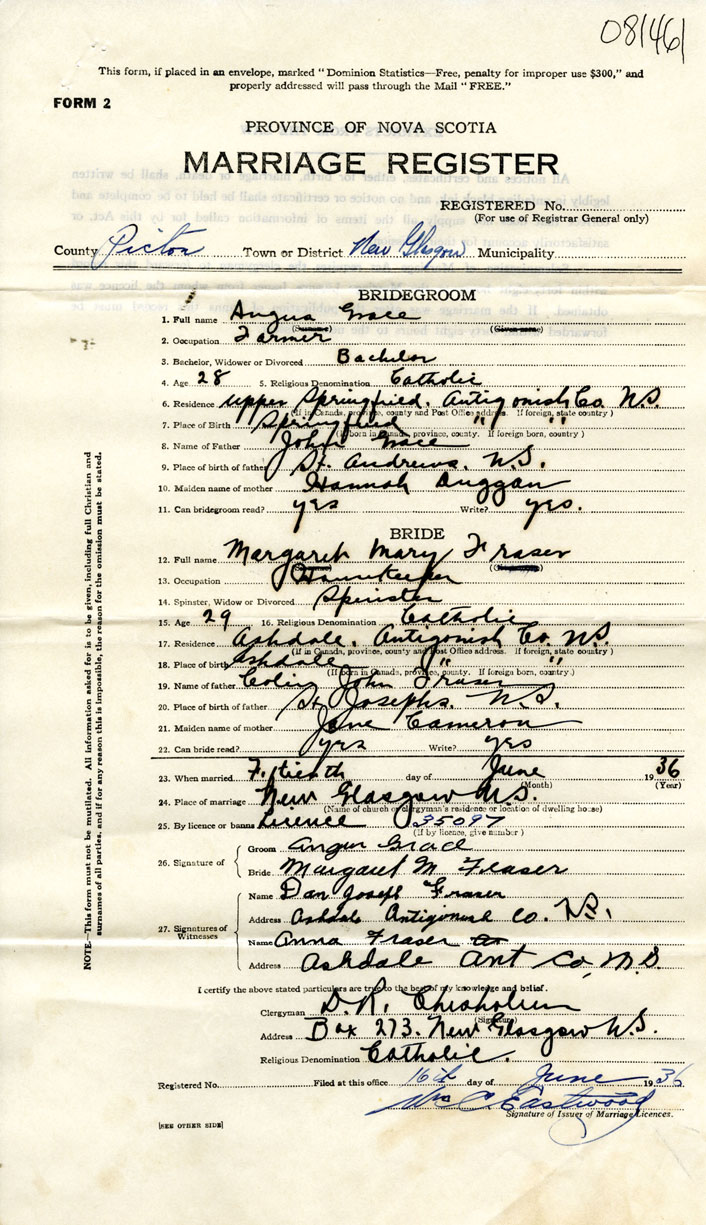 08146
This form, if placed in an envelope, marked "Dominion Statistics—Free, penalty for improper use $300," and
properly addressed will pass through the Mail "FREE."
FORM 2
PROVINCE OF NOVA SCOTIA
MARRIAGE REGISTER
REGISTERED No.
(For use of Registrar General only)
County Pictou Town or District New Glasgow Municipality
BRIDEGROOM
1. Full name Angus Grace
(Surname) (Given name)
2. Occupation Farmer
3. Bachelor, Widower or Divorced Bachelor
4. Age 28 5. Religious Denomination Catholic
6. Residence Upper Springfield. Antigonish Co. N.S.
(If in Canada, province, county and Post Office address. If foreign, state country)
7. Place of Birth Springfield " "
(If born in Canada, province, county. If foreign born, country)
8. Name of Father John Grace
9. Place of birth of father St. Andrews. N.S.
10. Maiden name of mother Hannah Duggan
11. Can bridegroom read? yes Write? yes.
BRIDE
12. Full name Margaret Mary Fraser
13. Occupation Housekeeper
14. Spinster, Widow or Divorced Spinster
15. Age 29 16. Religious Denomination Catholic
17. Residence Ashdale. Antigonish Co. N.S.
(If in Canada, province, county and Post Office address. If foreign, state country)
18. Place of birth Ashdale " "
(If born in Canada, province, county. If foreign born, country.)
19. Name of father Colin John Fraser
20. Place of birth of father St Josephs. N.S.
21. Maiden name of mother Jane Cameron
22. Can bride read? yes Write? yes
23. When married Fifteenth day of June 1936
(Month) (Year)
24. Place of marriage New Glasgow N.S.
(Name of church or clergyman's residence or location of dwelling house)
25. By licence or banns Licence 35097
(If by licence, give number)
26. Signature of Groom Angus Grace
Bride Margaret M Fraser
27. Signatures of Witnesses Name Dan Joseph Fraser
Address Ashdale Antigonish Co. N.S.
Name Anna Fraser
Address Ashdale Ant Co, N.S.
I certify the above stated particulars are true to the best of my knowledge and belief.
Clergyman D. R. Chisholm
(Signature)
Address Box 273. New Glasgow N.S.
Religious Denomination Catholic.
Registered No. Filed at this office 16th day of June 1936
Wm C. Eastwood
Signature of Issuer of Marriage Licences.
[SEE OTHER SIDE]
NOTE—This form must not be mutilated. All information asked for is to be given, including full Christian and
surnames of all parties, and if for any reason this is impossible, the reason for the omission must be stated.